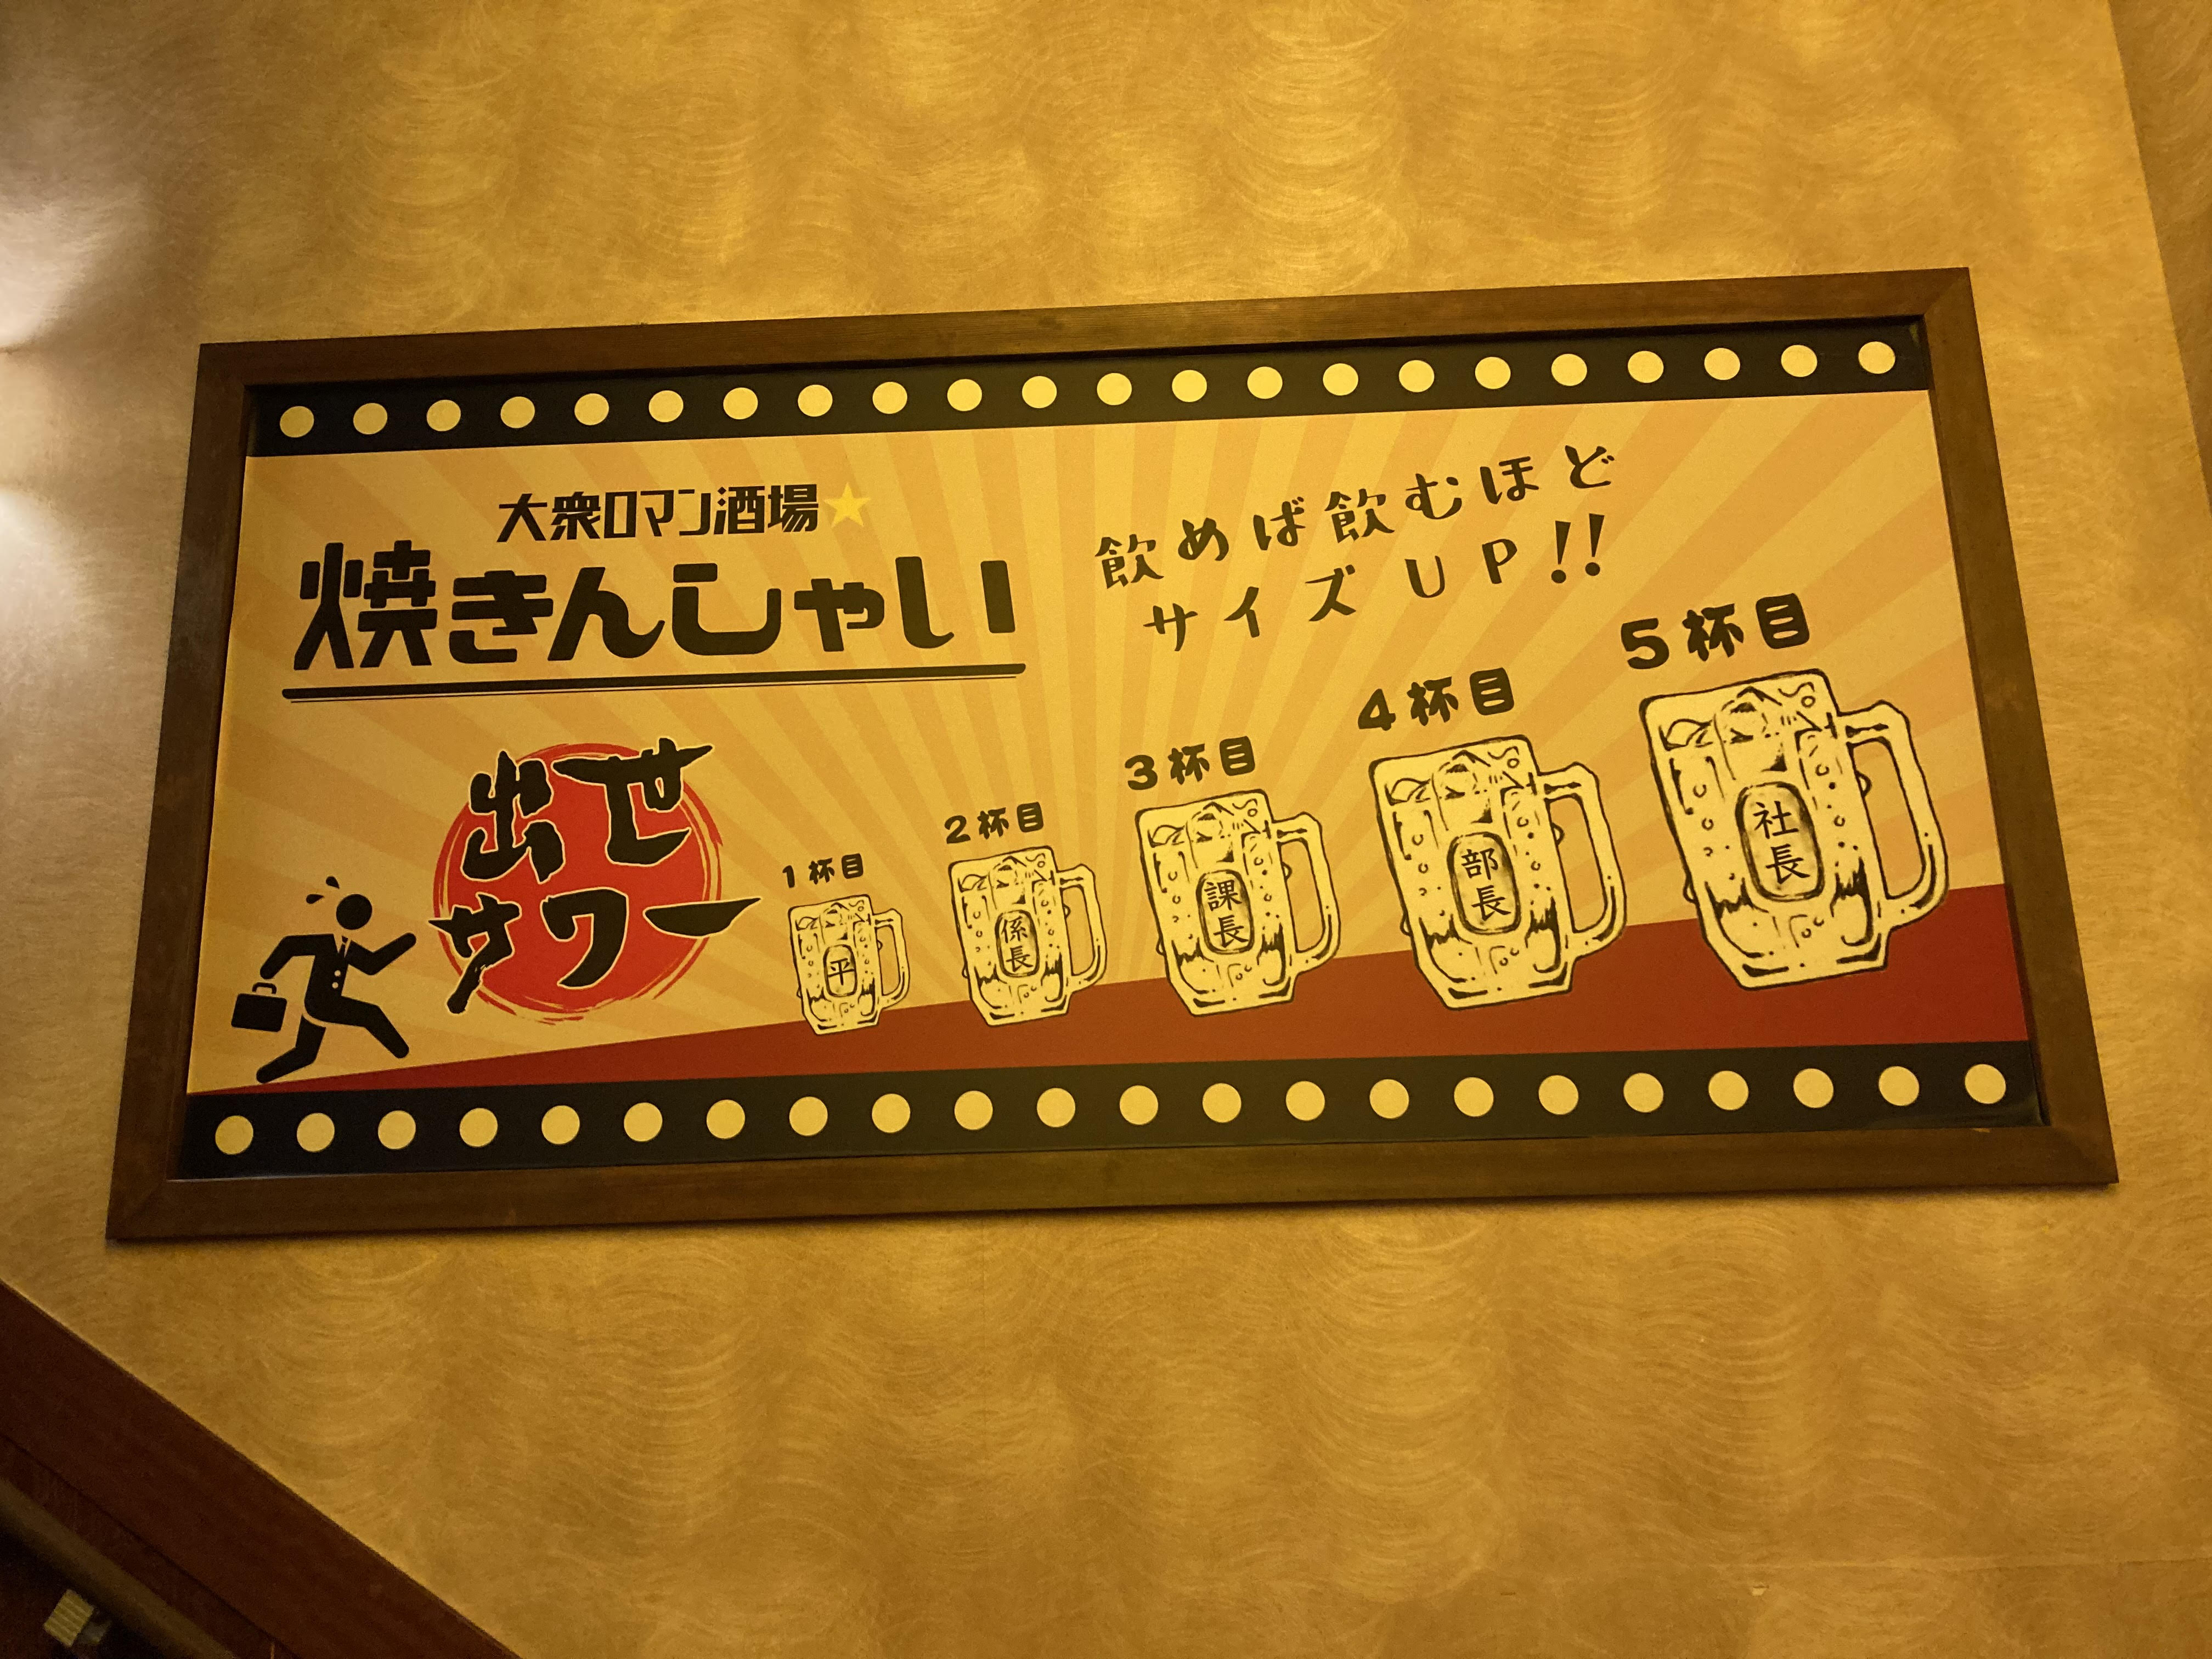 大衆ロマン酒場
焼きんしゃい
飲めば飲むほど
サイズUP!!
出世
サワー
1杯目
平
2杯目
係長
3杯目
課長
4杯目
部長
5杯目
社長